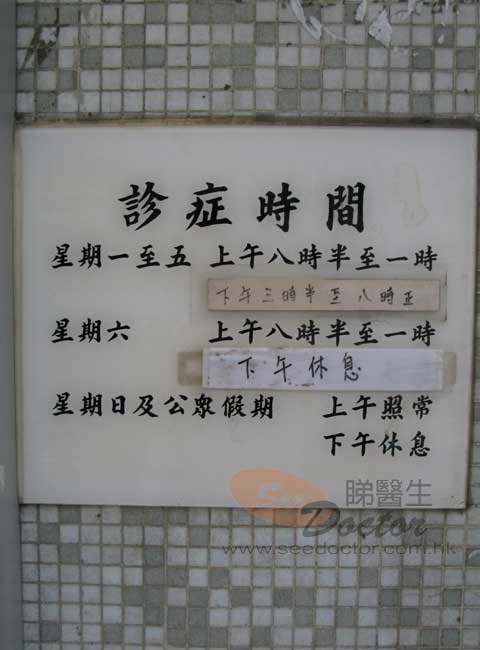 診症時間
星期一至五 上午八時半至一時
下午三時半至八時正
星期六 上午八時半至一時
下午休息
星期日及公眾假期 上午照常
下午休息
See 睇醫生
Doctor
www.seedoctor.com.hk